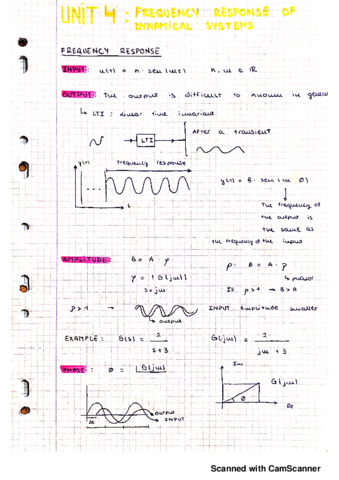 UNIT 4: FREQUENCY RESPONSE OF
DYNAMICAL SYSTEMS
FREQUENCY RESPONSE
INPUT: u(t) =
OUTPUT: The output is difficult to in general
↳ LTI : linear time invariant
→ LTI →
After a transient
y(t)
frequency response
t
The frequency of
the output is
the same as
the frequency of the input
AMPLITUDE: B = A · ρ
ρ: B = A · ρ
ρ = |G(jω)|
s=jω
If ρ>1 → B>A
ρ>1 →
INPUT Amplitude smaller
↳ output
EXAMPLE: G(s) = 2 / s+3
G(jω) = 2 / jω + 3
PHASE: Ø = G(jω)
Im
G(jω)
Ø
Re
OUTPUT
INPUT
Δt
Scanned with CamScanner